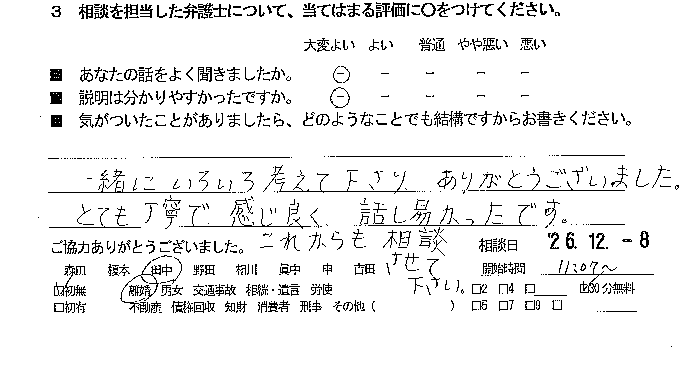 3 相談を担当した弁護士について、当てはまる評価に〇をつけてください。
大変よい よい 普通 やや悪い 悪い
■ あなたの話をよく聞きましたか。 － － － － －
■ 説明は分かりやすかったですか。 － － － － －
■ 気がついたことがありましたら、どのようなことでも結構ですからお書きください。
一緒にいろいろ考えて下さり、ありがとうございました。
とても丁寧で感じ良く、話し易かったです。
これからも相談
させて
下さい。
ご協力ありがとうございました。 相談日 '26.12.-8
森田 榎本 田中 野田 相川 眞中 申 吉田 開始時間 11:07～
初無 離婚 男女 交通事故 相続・遺言 労使 □2 □4 □ 30分無料
□初有 不動産 債権回収 知財 消費者 刑事 その他（ ） □6 □7 □9 □